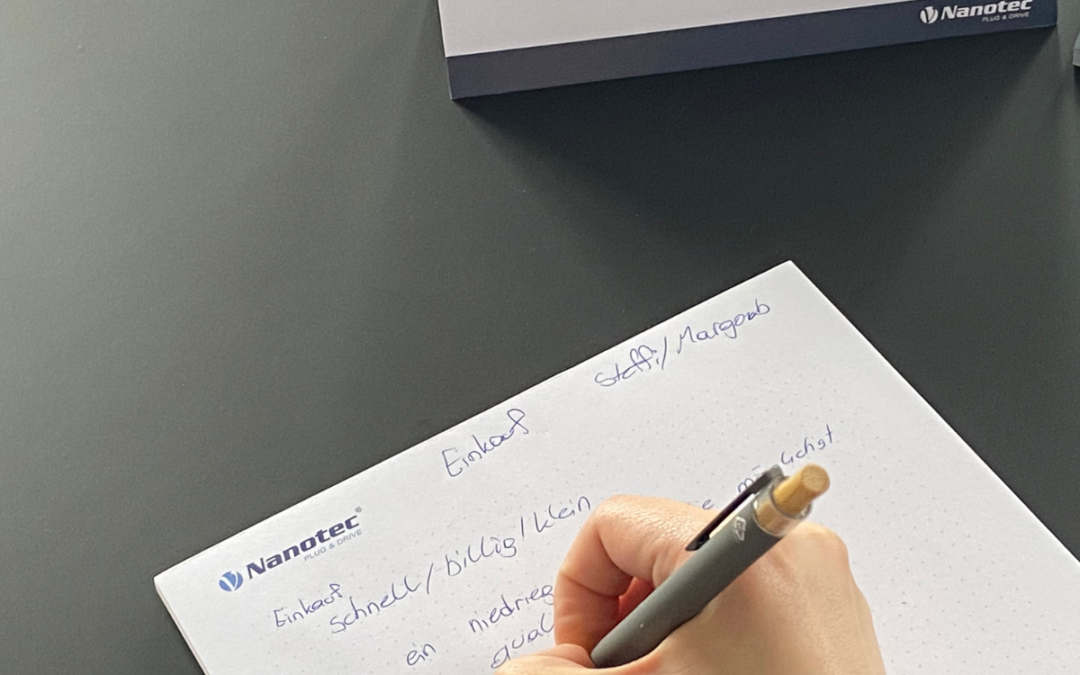 Nanotec
PLUG & DRIVE
Steffi/Margoub
Einkauf
Nanotec®
PLUG & DRIVE
Einkauf
schnell/billig/klein
ein niedrieg